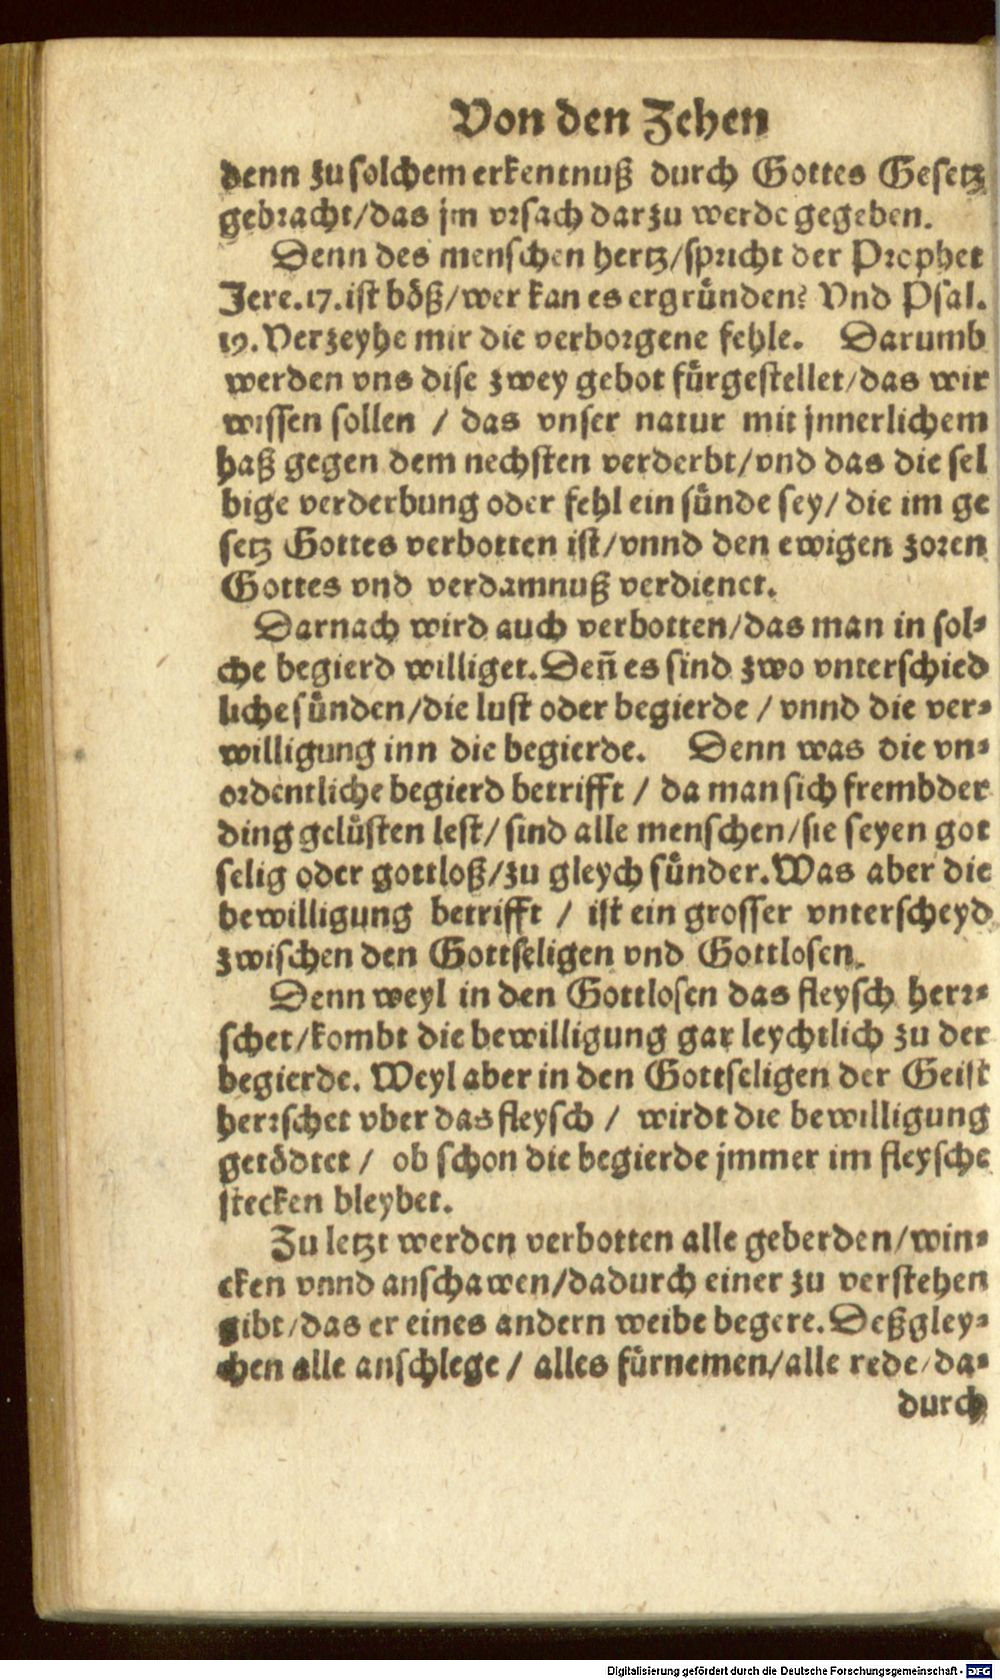 Von den Zehen
denn zu solchem erkentnuß durch Gottes Gesetz
gebracht/das jm vrsach darzu werde gegeben.
Denn des menschen hertz/spricht der Prophet
Jere.17.ist böß/wer kan es ergründen? Vnd Psal.
19.Verzeyhe mir die verborgene fehle. Darumb
werden vns dise zwey gebot fürgestellet/das wir
wissen sollen / das vnser natur mit jnnerlichem
haß gegen dem nechsten verderbt/vnd das die sel
bige verderbung oder fehl ein sünde sey/die im ge
setz Gottes verbotten ist/vnnd den ewigen zoren
Gottes vnd verdamnuß verdienet.
Darnach wird auch verbotten/das man in sol⸗
che begierd williget.Deñ es sind zwo vnterschied
liche sünden/die lust oder begierde / vnnd die ver⸗
willigung inn die begierde. Denn was die vn⸗
ordentliche begierd betrifft / da man sich frembder
ding gelüsten lest/sind alle menschen/sie seyen got
selig oder gottloß/zu gleych sünder.Was aber die
bewilligung betrifft / ist ein grosser vnterscheyd
zwischen den Gottseligen vnd Gottlosen.
Denn weyl in den Gottlosen das fleysch herr⸗
schet/kombt die bewilligung gar leychtlich zu der
begierde. Weyl aber in den Gottseligen der Geist
herrschet vber das fleysch / wirdt die bewilligung
getödtet / ob schon die begierde jmmer im fleysche
stecken bleybet.
Zu letzt werden verbotten alle geberden/win⸗
cken vnnd anschawen/dadurch einer zu verstehen
gibt/das er eines andern weibe begere.Deßgley⸗
chen alle anschlege / alles fürnemen/alle rede/da⸗
durch
Digitalisierung gefördert durch die Deutsche Forschungsgemeinschaft - DFG